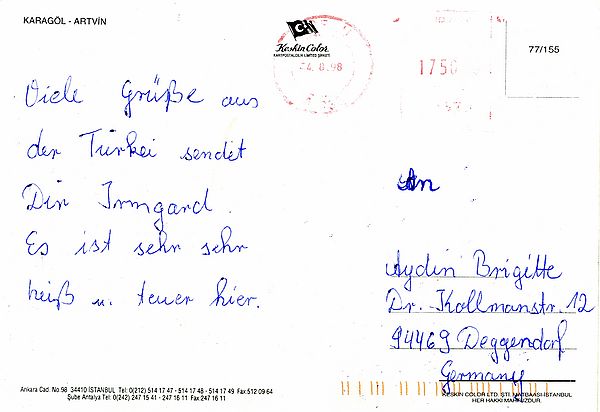 KARAGÖL - ARTVİN
Keskin Color
KARTPOSTALCILIK LİMİTED ŞİRKETİ
8.98
1750
77/155
Viele Grüße aus
der Türkei sendet
Dir Irmgard.
Es ist sehr sehr
heiß u. teuer hier.
An
Aydin Brigitte
Dr. Kollmanstr. 12
94469 Deggendorf
Germany
Ankara Cad. No 98 34410 İSTANBUL Tel: 0(212) 514 17 47 - 514 17 48 - 514 17 49 Fax: 512 09 64
Şube Antalya Tel: 0(242) 247 15 41 - 247 16 11 Fax: 247 16 11
KESKİN COLOR LTD. ŞTİ. MATBAASI-İSTANBUL
HER HAKKI MAHFUZDUR.